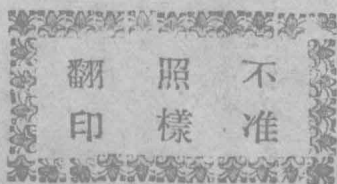 不准
照樣
翻印